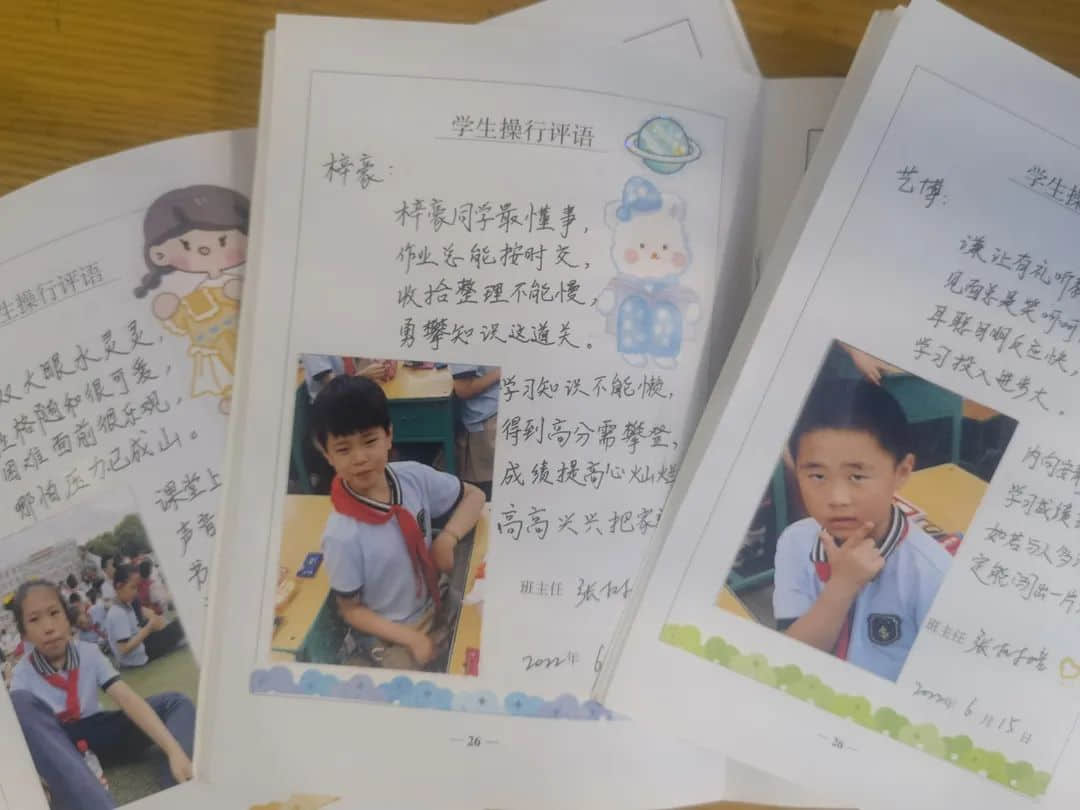 生操行评语
双大眼水灵灵，
性格随和很可爱，
困难面前很乐观，
哪怕压力已成山。
课堂上
声音
节
学生操行评语
梓豪：
梓豪同学最懂事，
作业总能按时交，
收拾整理不能慢，
勇攀知识这道关。
学习知识不能懒，
得到高分需攀登，
成绩提高心灿烂
高高兴兴把家
班主任 张
2022年 6
— 26 —
学生操
艺博：
谦让有礼听
见面总是笑呵呵
耳聪目明反应快，
学习投入进步大。
内向安
学习成绩
如若与人多
定能闯出一片
班主任 张
2022年 6月15日
— 26 —